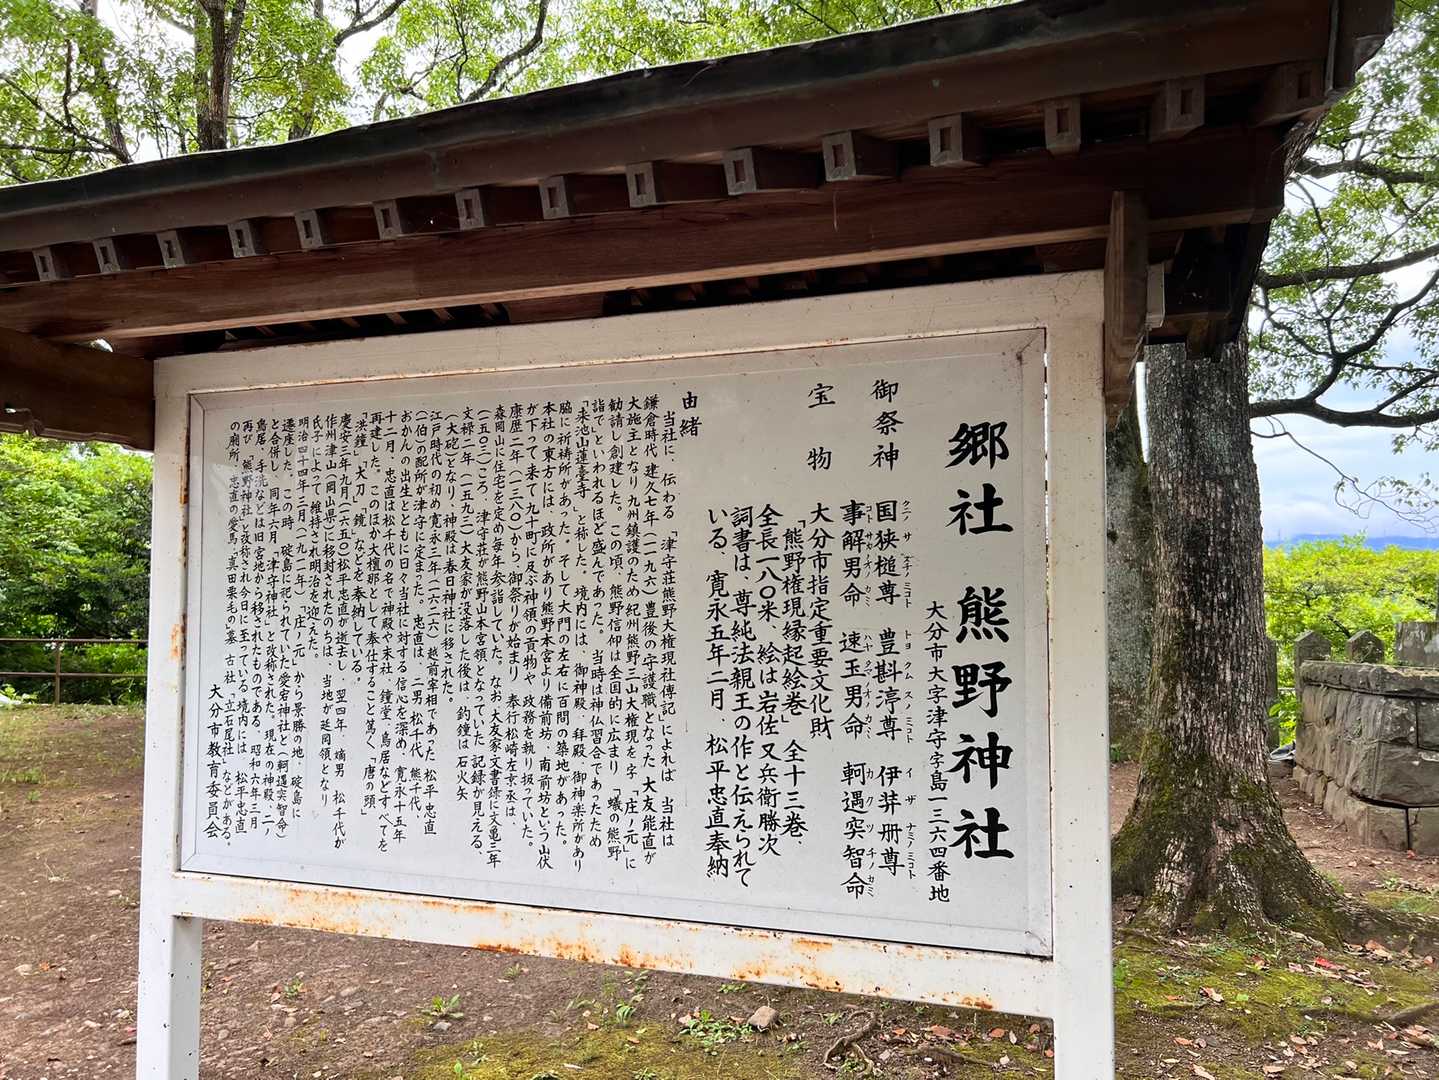 郷社 熊野神社
大分市大字津守字島一三六四番地
御祭神
国狭槌尊 豊斟渟尊 伊弉冊尊
クニノサズチノミコト トヨクムヌノミコト イザナミノミコト
事解男命 速玉男命 軻遇突智命
コトサカノオノカミ ハヤタマノオノカミ カグツチノカミ
宝物
大分市指定重要文化財
「熊野権現縁起絵巻」 全十三巻、
全長一八〇米、絵は岩佐又兵衛勝次
詞書は、尊純法親王の作と伝えられて
いる、寛永五年二月、松平忠直奉納
由緒
当社に、伝わる「津守荘熊野大権現社傳記」によれば、当社は
鎌倉時代 建久七年(一一九六)豊後の守護職となった 大友能直が
大施主となり九州鎮護のため紀州熊野三山大権現を字「庄ノ元」に
勧請し創建した。この頃、熊野信仰は全国的に広まり「蟻の熊野
詣で」といわれるほど盛んであった。当時は神仏習合であったため
「来池山蓮臺寺」と称した。境内には、御神殿、拝殿、御神楽所があり
脇に祈祷所があった。そして大門の左右に百間の築地があった。
本社の東方には、政所があり熊野本宮より備前坊、南前坊という山伏
が下って来て九十町に及ぶ神領の貢物や、政務を執り扱っていた。
康歴二年(一三八〇)から、御祭りが始まり、奉行松崎左京亟は、
森岡山に住宅を定め毎年参詣していた。なお、大友家文書録に文亀三年
(一五〇三)ごろ、津守荘が熊野山本宮領となっていた 記録が見える、
文禄二年(一五九三)大友家が没落した後は、釣鐘は石火矢
(大砲)となり、神殿は春日神社に移された。
江戸時代の初め寛永三年(一六二六)越前宰相であった 松平忠直
(一伯)の配所が津守に定まった。忠直は、二男 松千代、熊千代、
おかんの出生とともに日々当社に対する信心を深め、寛永十五年
十二月、忠直は松千代の名で神殿や末社 鐘堂、鳥居などすべてを
再建した。このほか大檀那として奉仕すること篤く、「唐の頭」
「洪鐘」、「大刀」「鏡」などを奉納している。
慶安三年九月(一六五〇)松平忠直が逝去し、翌四年 嫡男 松千代が
作州津山(岡山県)に移封されたのちは、当地が延岡領となり
氏子によって維持され明治を迎えた。
明治四十四年三月(一九一一年)「庄ノ元」から景勝の地 破島に
遷座した。この時、破島に祀られていた愛宕神社と(軻遇突智命)
と合併し 同年六月「津守神社」と改称された。現在の神殿、二ノ
鳥居、手洗などは旧宮地から移されたものである。昭和六年三月
再び「熊野神社」と改称され今日に至っている。境内には、松平忠直
の廟所、忠直の愛馬・真田栗毛の墓、古社「立石尾社」などがある。
大分市教育委員会